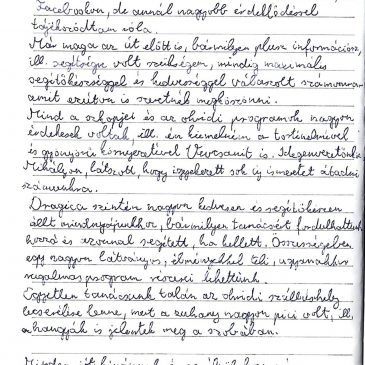 Facebookon, de annál nagyobb érdeklődéssel
tájékozódtam róla.
Már maga az út előtt is, bármilyen plusz információra,
ill. segítségre volt szükségem, mindig maximális
segítőkészséggel és kedvességgel válaszolt számomra
amit ezúton is szeretnék megköszönni.
Mind a szkopjei és az ohridi programok nagyon
érdekesek voltak, ill. én kiemelném a történelmével
és gyönyörű környezetével Vevcsanit is. Idegenvezetőnk
Mihályon, látszott, hogy igyekezett sok új ismeretet átadni
számunkra.
Dragica szintén nagyon kedvesen és segítőkészen
állt mindnyájunkhoz, bármilyen tanácsért fordulhattunk
hozzá és azonnal segített, ha kellett. Összességében
egy nagyon látványos, élményekkel teli, ugyanakkor
rugalmas program részesei lehettünk.
Egyetlen tanácsunk talán az ohridi szálláshely
lecserélése lenne, mert a zuhany nagyon pici volt, ill.
a hangyák is jelentek meg a szobában.